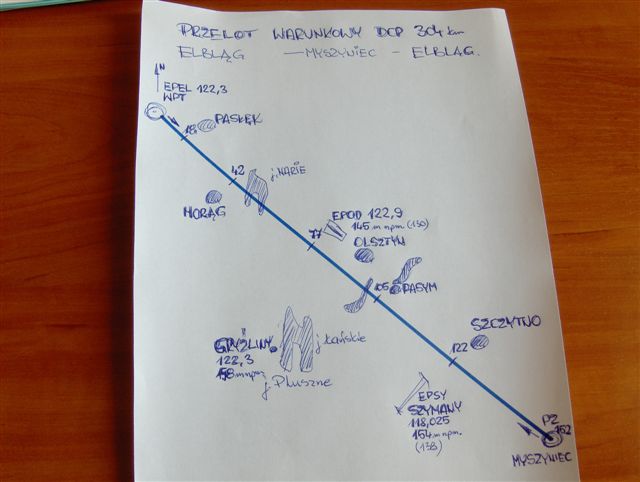 PRZELOT WARUNKOWY DCP 304 km
ELBLĄG — MYSZYNIEC - ELBLĄG.
N
EPEL 122,3
WPT
18
PASŁĘK
42
j. NARIE
MORĄG
EPOD 122,9
145 m npm (130)
77
OLSZTYN
105
PASYM
SZCZYTNO
GRYŹLINY
122,3
158 m npm
j. Łańskie
j. Pluszne
122
EPSY
SZYMANY
118,025
154 m npm.
(138)
PZ
152
MYSZYNIEC